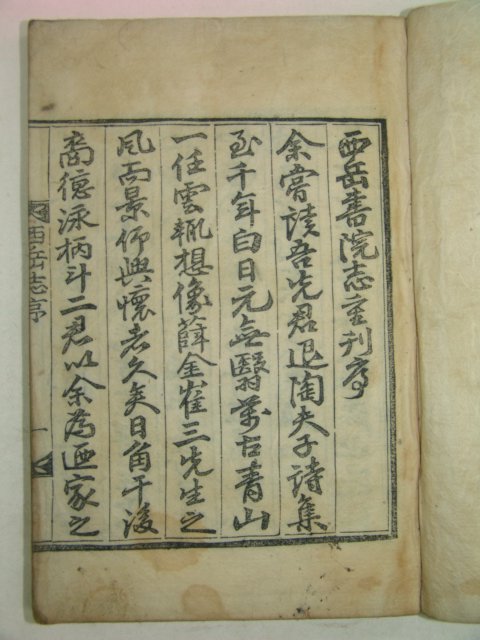 西岳書院志重刊序
余嘗讀吾先君退陶夫子詩集
至千年白日元無翳萬古靑山
一任雲輒想像薛金崔三先生之
風而景仰興懷者久矣日角干後
裔德泳柄斗二君以余爲迺家之
西岳志序
一